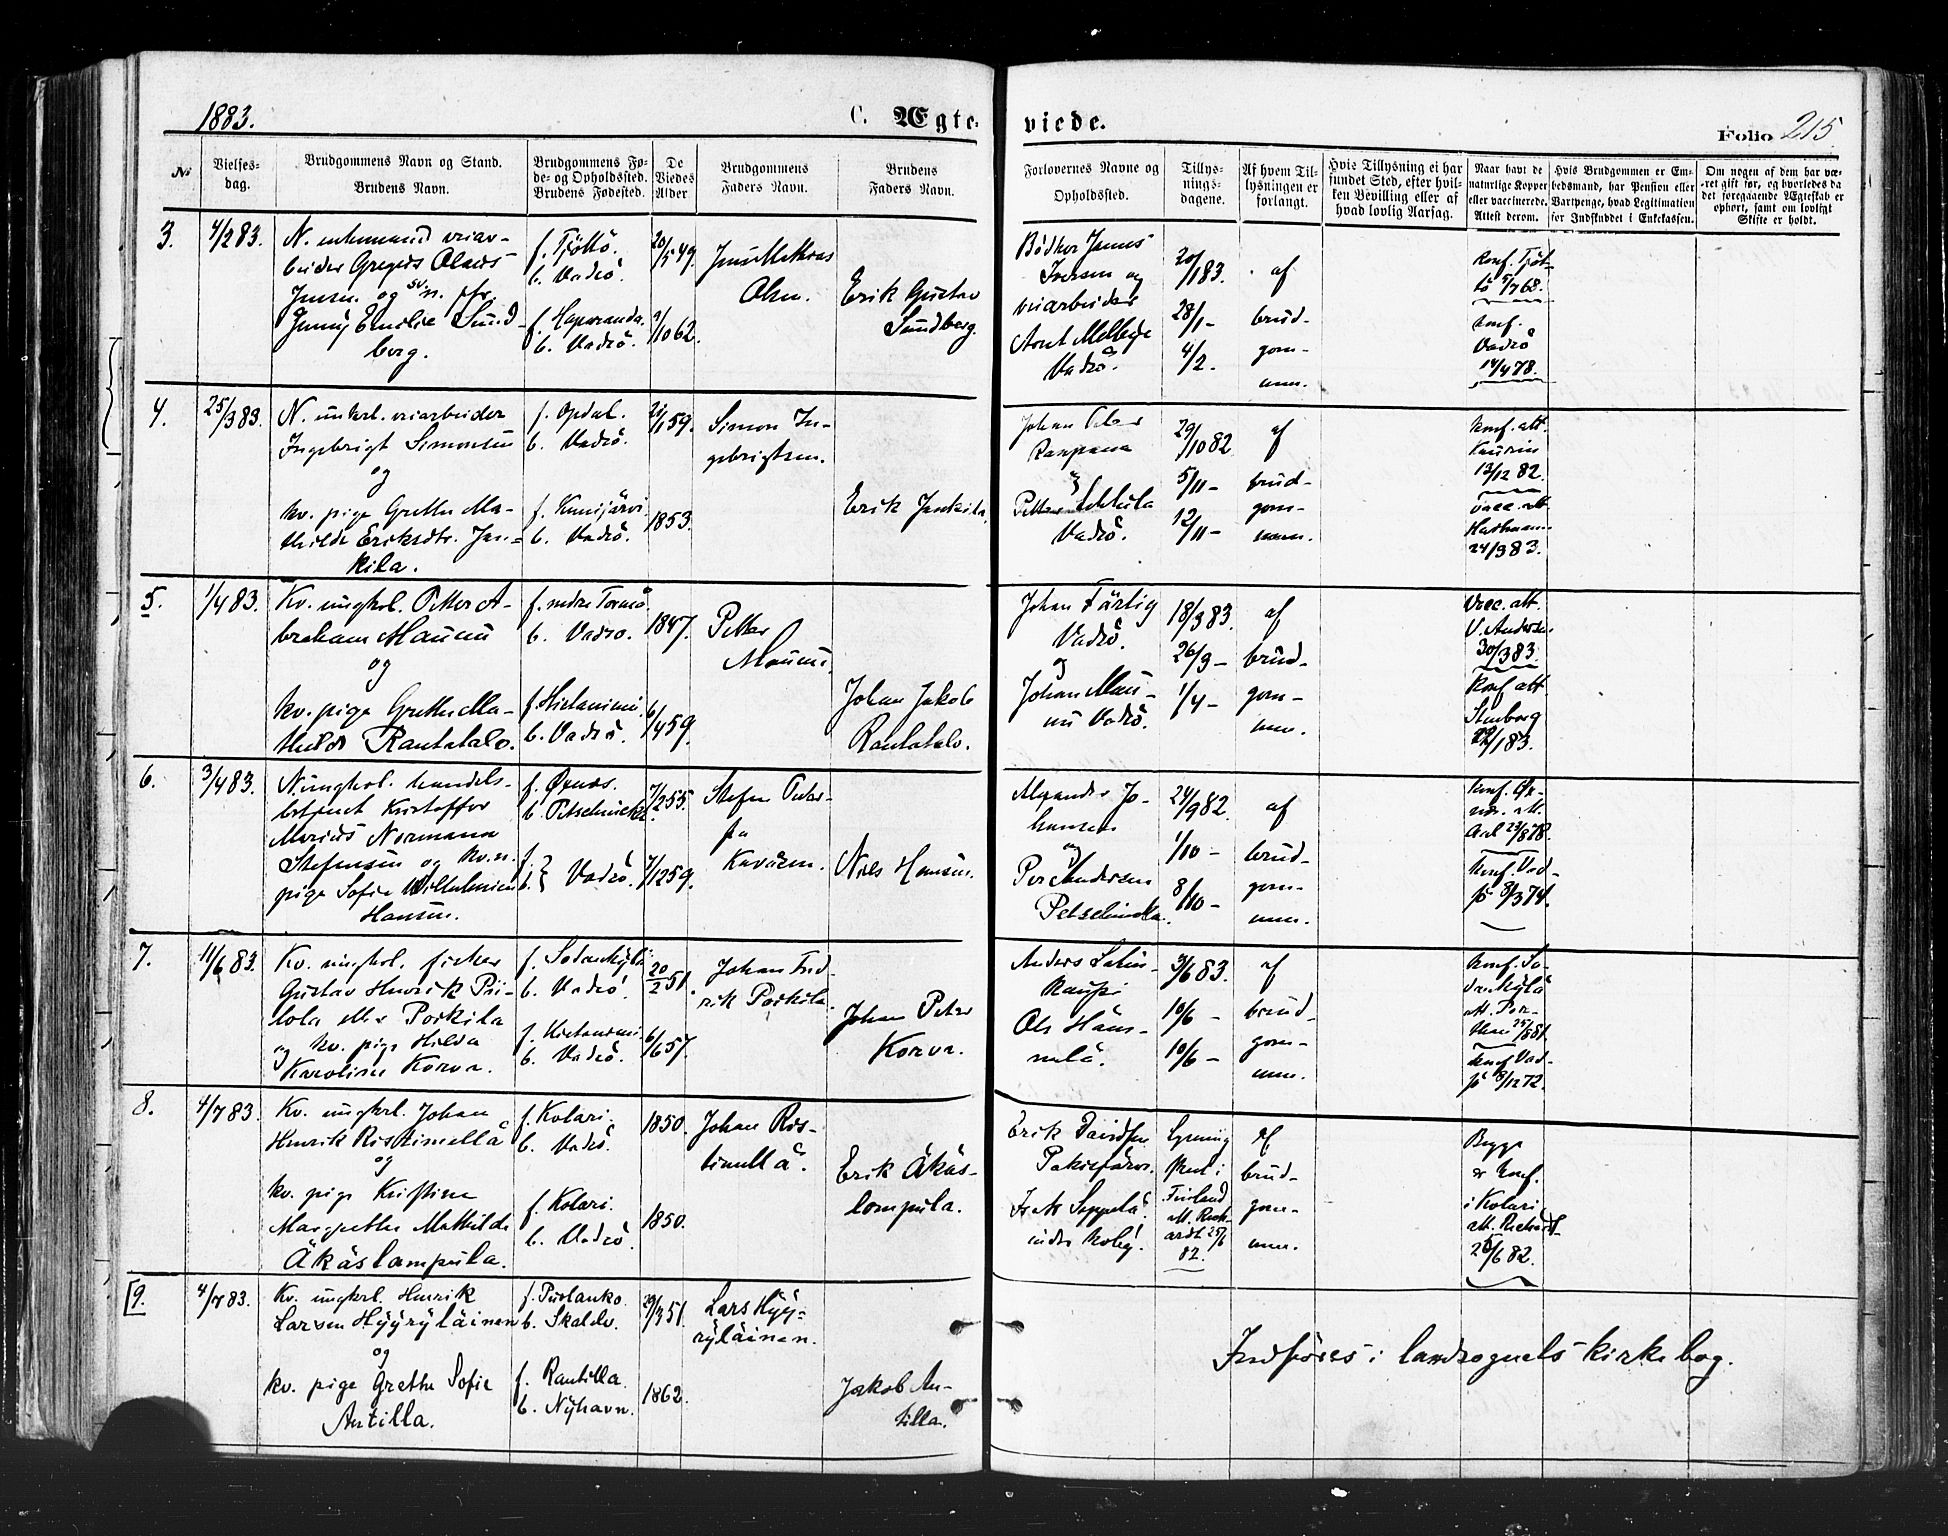 1883.
C. Ægteviede.
Folio 215
No
Vielsesdag.
Brudgommens Navn og Stand.
Brudens Navn.
Brudgommens Føde- og Opholdssted.
Brudens Fødested.
De Viedes Alder
Brudgommens Faders Navn.
Brudens Faders Navn.
Forlovernes Navne og Opholdssted.
Tillysningsdagene.
Af hvem Tillysningen er forlangt.
Hvis Tillysning ei har fundet Sted, efter hvilken Bevilling eller af hvad lovlig Aarsag.
Naar havt de naturlige Kopper eller vaccinerede. Attest derom.
Hvis Brudgommen er Embedsmand, har Pension eller Vartpenge, hvad Legitimation for Indskuddet i Enkekassen.
Om nogen af dem har været gift før, og hvorledes da det foregaaende Ægteskab er ophørt, samt om lovligt Skifte er holdt.
3.
4/2 83.
N. enkemand veiar-
beider Gregers Olaus
Jensen og sv. n. pr.
Jenny Emilie Sund-
berg.
f. Tjøttø.
b. Vadsö.
f. Haparanda.
b. Vadsö.
20/5 49.
1/10 62.
Jens Mathias
Olsen.
Erik Gustav
Sundberg.
Bödker Jenus
Iversen og
veiarbeider
Arnt Melbye
Vadsö.
20/1 83.
28/1 -
4/2.
af
brud-
gom-
men.
Konf. Tjöt-
tö 5/7 68.
Konf.
Vadsö
14/4 78.
4.
25/3 83.
N. unkrl. veiarbeider
Ingebrigt Simonsen
og
kv. pige Grethe Ma-
thilde Eriksdtr. Jan-
kila.
f. Opdal.
b. Vadsö.
f. Kemijärvi.
b. Vadsö.
21/1 59.
1853.
Simon In-
gebrigtsen.
Erik Jankila.
Johan Peter
Ranpana
og
Vadsö.
29/10 82
5/11 -
12/11 -
af
brud-
gom-
men.
Konf. att.
Kaurin
13/12 82.
vacc. att
24/3 83.
5.
1/4 83.
Kv. ungkrl. Petter A-
braham Maunu
og
kv. pige Grethe Ma-
thilde Rantatalo.
f. nedre Torneå
b. Vadsö.
f. Hietaniemi.
b. Vadsö.
1847.
6/4 59.
Petter
Maunu.
Johan Jakob
Rantatalo.
Johan Färlig
Vadsö.
og
Johan Mau-
nu Vadsö.
18/3 83.
26/3 -
1/4 -
af
brud-
gom-
men.
Vacc. att.
V. Andersen
30/3 83.
Konf att
Stenborg
22/1 83.
6.
3/4 83.
N. ungkrl. handels-
betjent Kristoffer
Marius Normann
Stefensen og kv. n.
pige Sofie Wilhelmine
Hansen.
f. Øxnes.
b. Petschincka.
f.
b. } Vadsö.
7/2 55.
7/12 59.
Stefen Peter-
sen
Kaväsen.
Nils Hansen.
Alexander Jo-
hansen
og
Per Andersen
Petschincka.
24/9 82.
1/10 -
8/10 -
af
brud-
gom-
men.
Konf. Øx-
nes. att.
Aal 23/8 78.
Konf. Vad-
sö 8/3 74.
7.
11/6 83.
Kv. ungkrl. fisker
Gustav Henrik Pii-
lola eller Poikila
og kv. pige Hilda
Karoline Korva.
f. Sodankylä.
b. Vadsö.
f. Hietaniemi
b. Vadsö.
20/2 51.
6/6 57.
Johan Fred-
rik Poikila
Johan Peter
Korva.
Anders Salm-
kaupi
Ole Häm-
melä.
3/6 83.
10/6 -
10/6 -
af
brud-
gom-
men.
Konf. So-
dankylä
Konf Vad-
sö 8/12 72.
8.
4/7 83.
Kv. ungkrl. Johan
Henrik Ristimella
og
kv. pige Kristine
Margrethe Mathilde
Äkäslompula.
f. Kolari.
b. Vadsö.
f. Kolari.
b. Vadsö.
1850.
1850.
Johan Ris-
timella.
Erik Äkäs-
lompula.
Erik Davidsen
Pakisjärvi.
Isak Seppelä
Lysning
sket i
Finland
att. Rech-
ardt 25/6
82.
af
brud-
gom-
men.
Begge
er konf.
i Kolari
att. Rechardt
25/6 82.
9.
4/7 83.
Kv. ungkrl. Henrik
Larsen Hyyryläinen
og
kv. pige Grethe Sofie
Antilla.
f. Puolanko.
b. Skalelv.
f. Rautilla.
b. Nyhavn.
29/3 51.
1862.
Lars Hyy-
ryläinen.
Jakob An-
tilla.
Indföres i landsognets kirkebog.